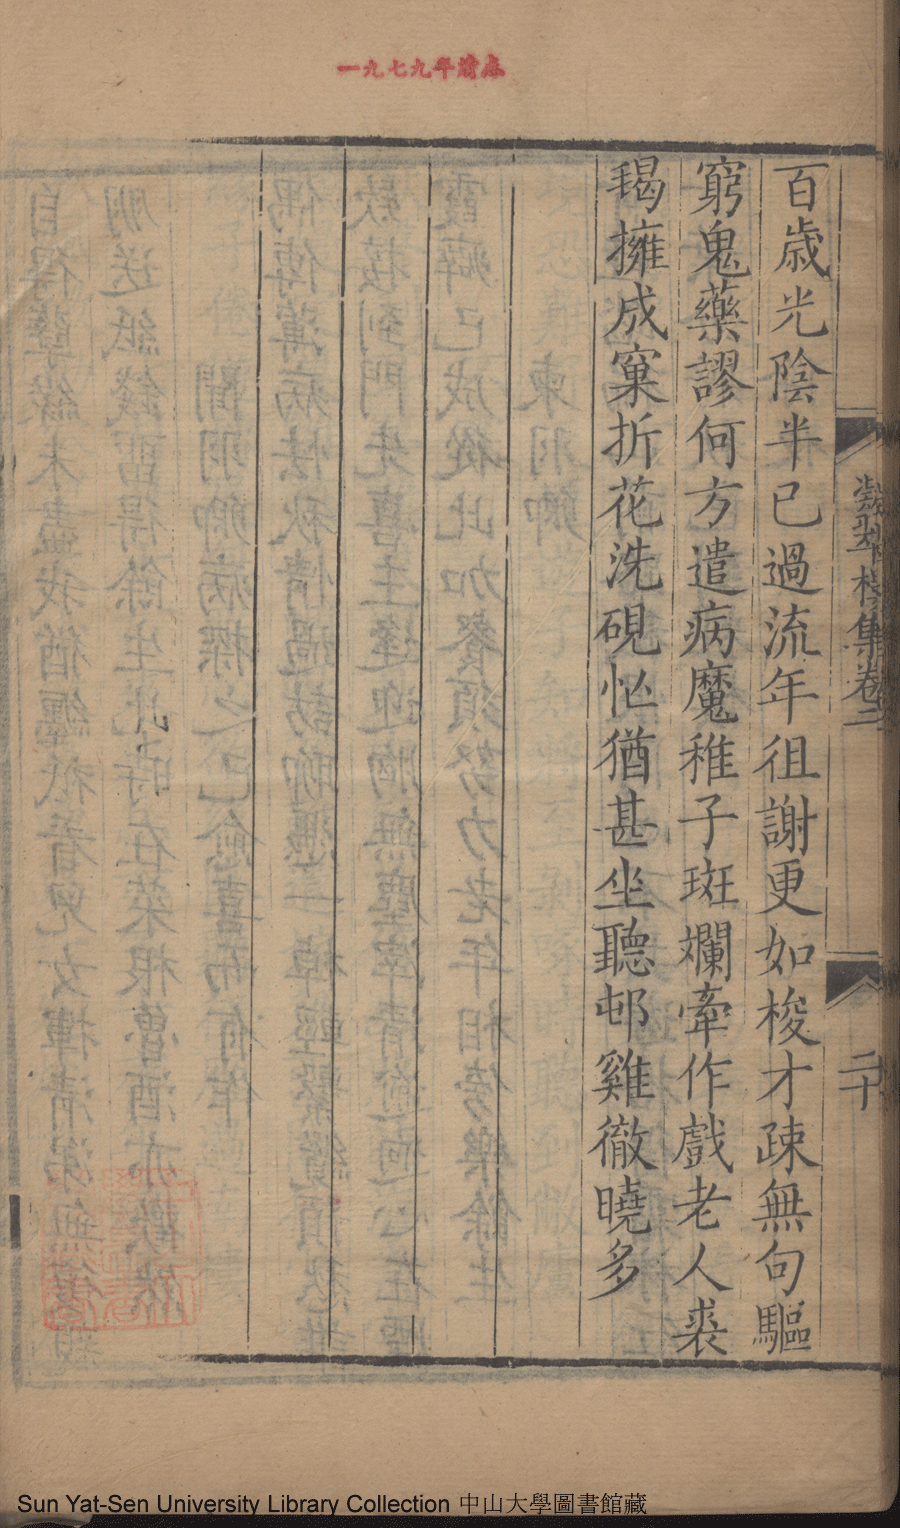 一九七九年清产
百歲光陰半已過流年徂謝更如梭才疎無句驅
窮鬼藥謬何方遣病魔稚子斑斕牽作戲老人裘
毼擁成窠折花洗硯忙猶甚坐聽邨雞徹曉多
樓集卷二
二十
Sun Yat-Sen University Library Collection 中山大學圖書館藏